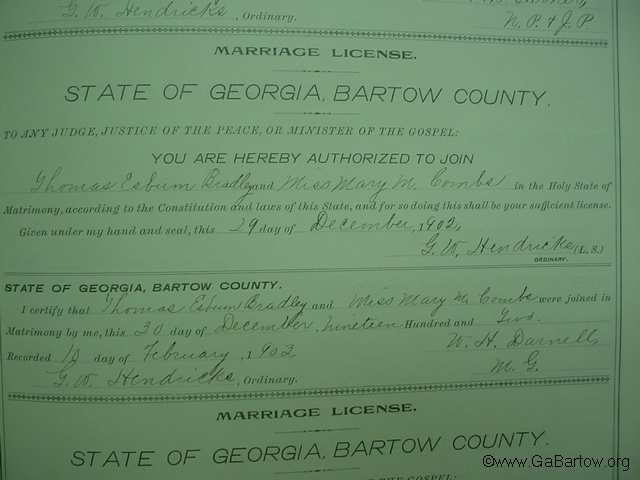 G. W. Hendricks, Ordinary.
N. P. & J. P.
MARRIAGE LICENSE.
STATE OF GEORGIA, BARTOW COUNTY.
TO ANY JUDGE, JUSTICE OF THE PEACE, OR MINISTER OF THE GOSPEL:
YOU ARE HEREBY AUTHORIZED TO JOIN
Thomas Esbum Bradley and Miss Mary M. Combs in the Holy State of
Matrimony, according to the Constitution and laws of this State, and for so doing this shall be your sufficient license.
Given under my hand and seal, this 29 day of December, 1902,
G. W. Hendricks (L. S.)
ORDINARY.
STATE OF GEORGIA, BARTOW COUNTY.
I certify that Thomas Esbum Bradley and Miss Mary M. Combs were joined in
Matrimony by me, this 30 day of December, nineteen Hundred and Two.
Recorded day of February, 1903 W. H. Darnell,
G. W. Hendricks, Ordinary. M. G.
MARRIAGE LICENSE.
STATE OF GEORGIA, BARTOW COUNTY.
THE GOSPEL:
©www.GaBartow.org